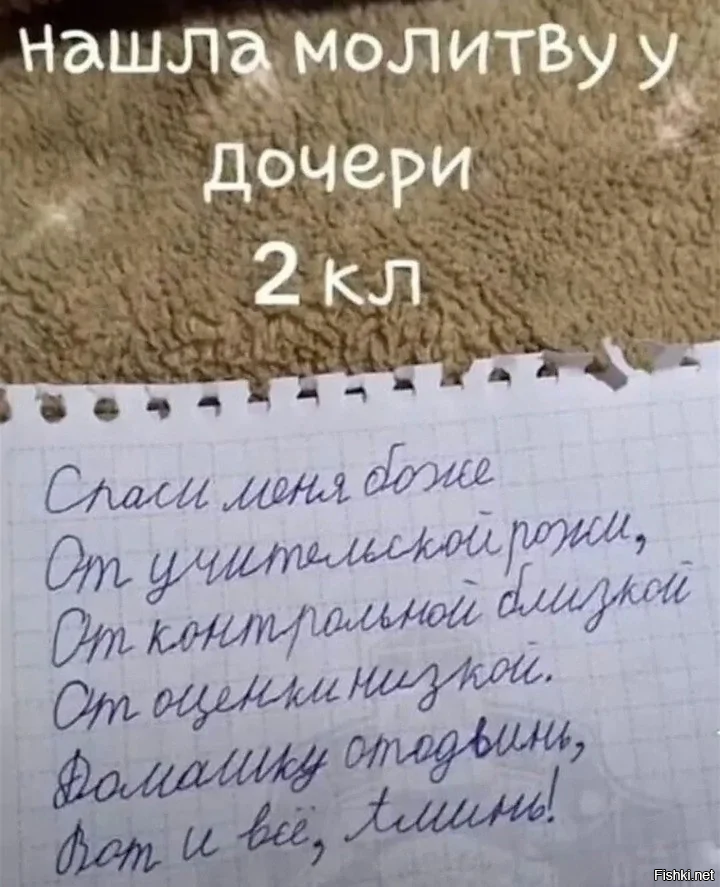 Нашла молитву у
дочери
2 кл
Спаси меня боже
От учительской рожи,
От контрольной близкой
От оценки низкой.
Домашку отодвинь,
Вот и всё, Аминь!
Fishki.net